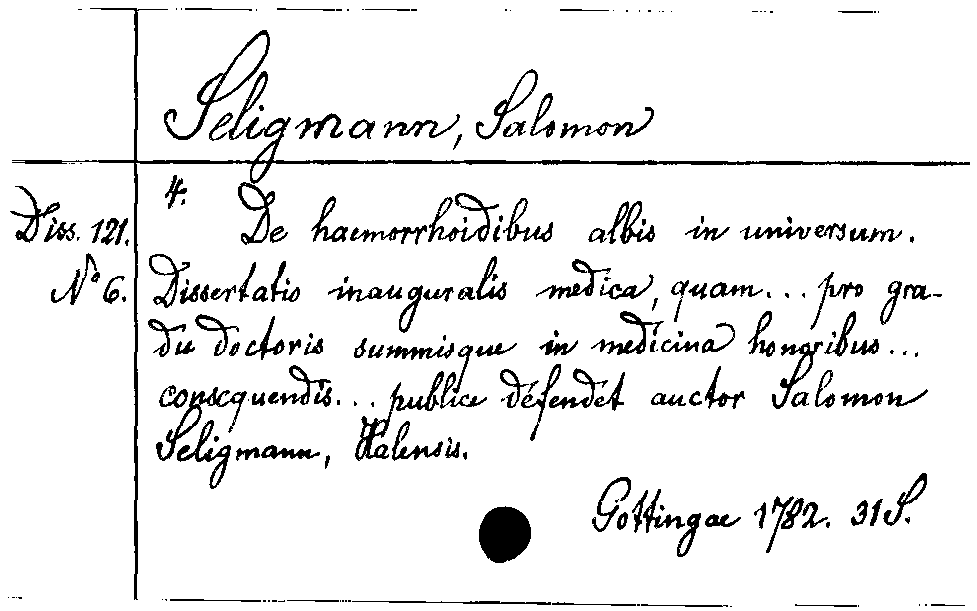 Seligmann, Salomon
4.
Diss. 121.
De haemorrhoidibus albis in universum.
No 6.
Dissertatio inauguralis medica, quam... pro gra-
du doctoris summisque in medicina honoribus...
consequendis... publice defendet auctor Salomon
Seligmann, Halensis.
Gottingae 1782. 31 S.